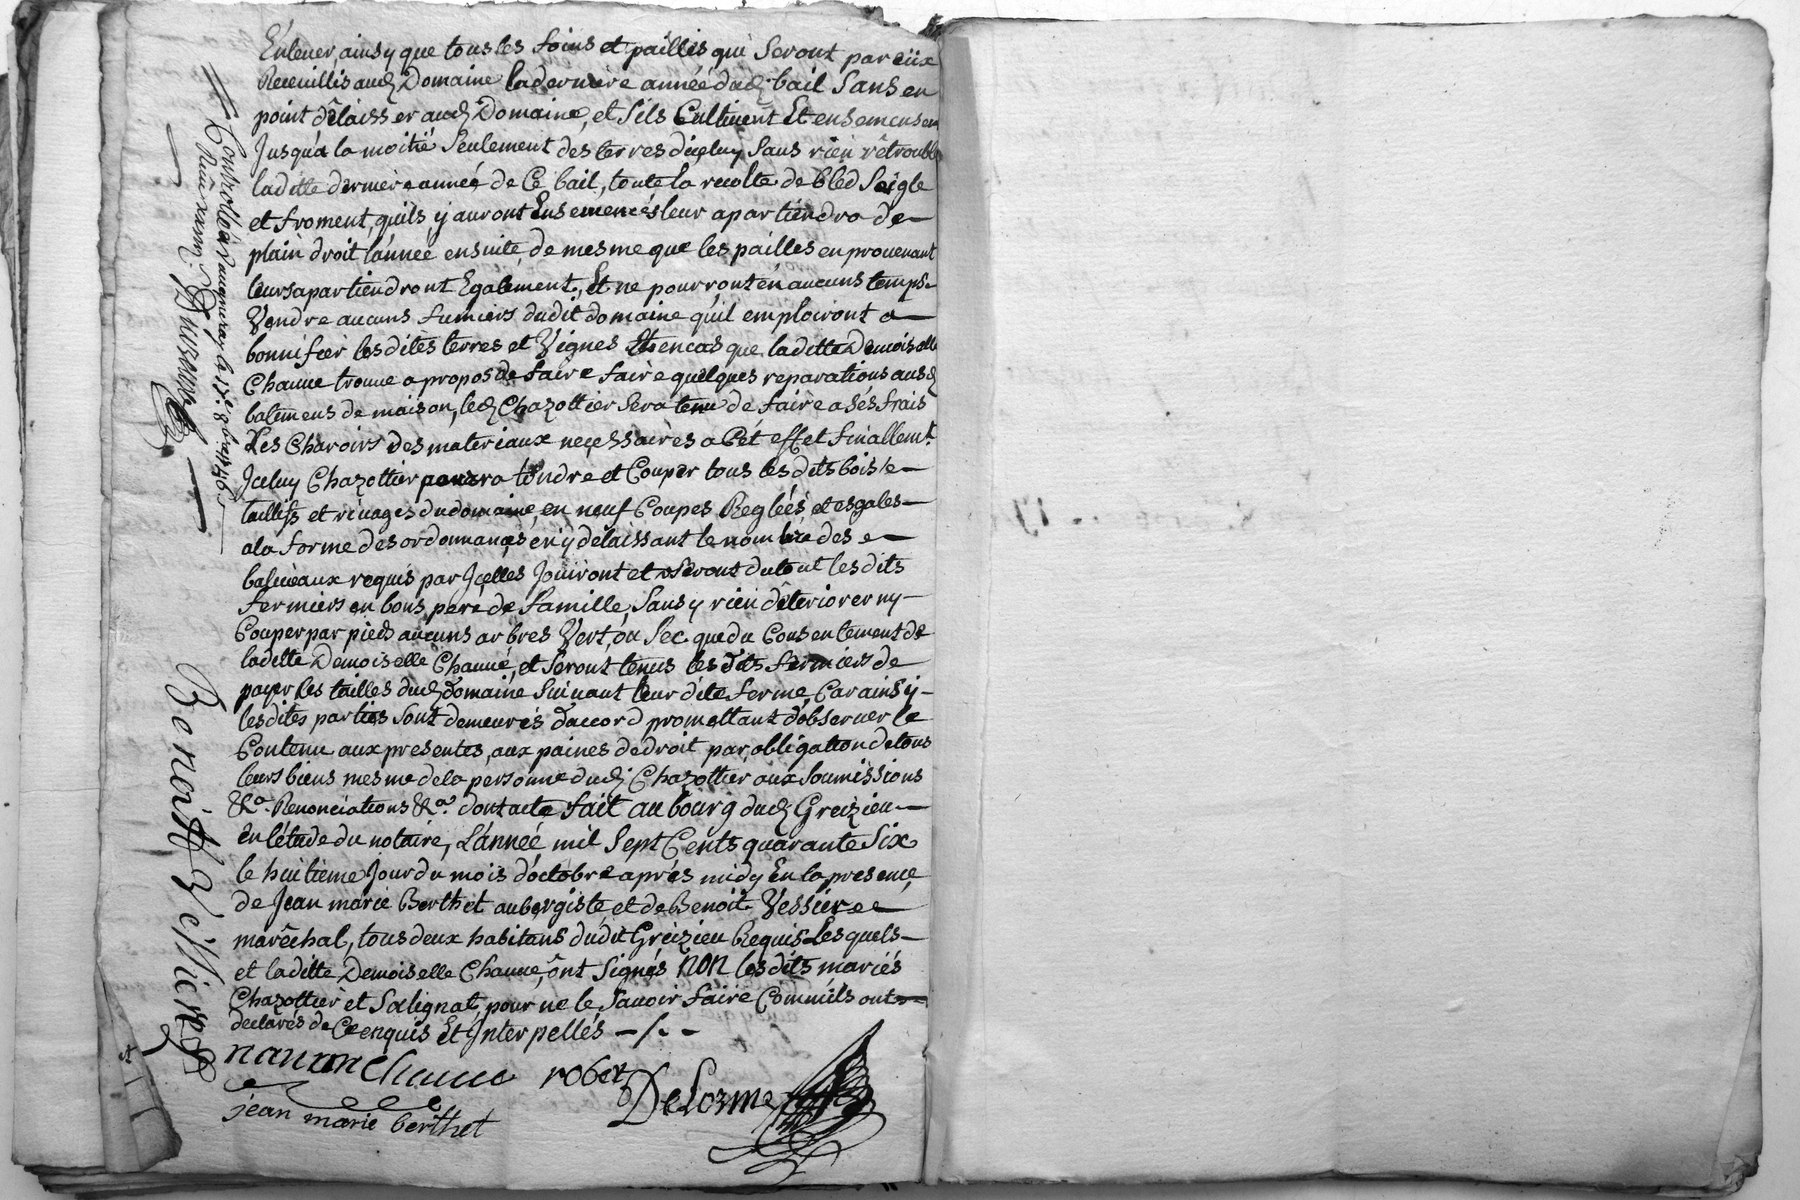 Enlever, ainsy que tous les foins et paillis qui seront par eux
Receuillis aud. Domaine la derniere année dud. bail sans en
point délaisser aud. Domaine, et sils Cultivent Et ensemensen
Jusqu'à la moitié seulement des terres diceluy sans rien rêtroubl
laditte derniere année de Ce bail, toute la recolte de bled Seigle
et froment, quils y auront Ensemencés leur apartiendra de
plain droit l'année ensuite, de mesme que les pailles en provenant
leurs apartiendront Egalement, Et ne pourront en aucuns temps
Vendre aucuns fumiers dudit domaine quil emploiront a
bonnifier lesdites terres et Vignes Et en cas que laditte Demoiselle
Chauue trouve a propos de faire faire quelques reparations ausd.
batimens de maison, led. Chazottier sera tenu de faire a ses frais
Les Charoirs des materiaux neçessaires a Cét effet finallemt.
Jceluy Chazottier pourra tondre et Couper tous les dits bois
taillifs et rivages dudomaine, en neuf Coupes Reglées et esgales
ala forme des ordonnances, en y delaissant le nombre des
baliveaux requis par Jçelles Joüiront et useront du tout lesdits
fermiers en bons pere de famille, sans y rien déteriorer ny
Couper par pieds aucuns arbres Vert, ou Sec que du Consentement de
laditte Demoiselle Chauue, et seront tenus les dits fermiers de
payer les tailles dud. domaine suivant leur dite ferme, Car ainsy
lesdites parties sont demeurés d'accord promettant d'observer le
Contenu aux presentes, aux paines de droit par obligation de tous
leurs biens mesme de la personne dud. Chazottier aux soumissions
&a. Renonciations &a. dont acte fait au bourg dud. Greizieu
En l'étude du notaire, L'année mil sept Cents quarante Six
le huitieme Jour du mois d'octobre après midy En la presence
de Jean marie Berthet aubergiste et de Benoit Vessiere
maréchal, tous deux habitans dudit Greizieu Requis Lesquels
et laditte Demoiselle Chauue, ônt signés non les dits mariés
Chazottier et Salignat, pour ne le savoir faire Comm'ils ont
declarés de Ce enquis Et Jnterpellés
nanon Chauue
robert
DeLorme
jean marie berthet
Benoit
Controllé à vaugneray le 15e. 8bre 1746